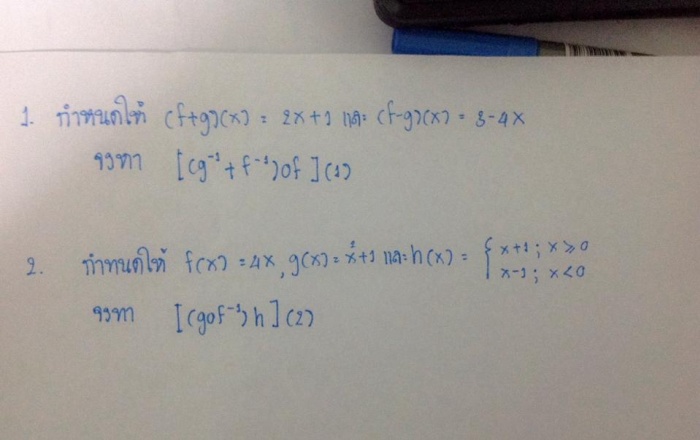 1. กำหนดให้ (f+g)(x) = 2x+1 และ (f-g)(x) = 3-4x
จงหา [(g⁻¹+f⁻¹)of](1)
2. กำหนดให้ f(x) = 4x, g(x) = x²+1 และ h(x) = { x+1 ; x ≥ 0
x-1 ; x < 0
จงหา [(gof⁻¹)h](2)